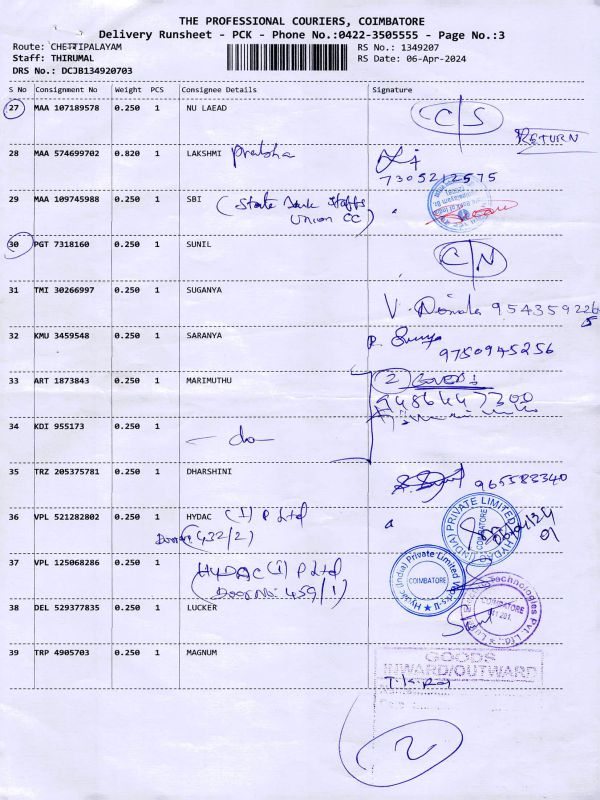 THE PROFESSIONAL COURIERS, COIMBATORE
Delivery Runsheet - PCK - Phone No.:0422-3505555 - Page No.:3
Route: CHETTIPALAYAM
Staff: THIRUMAL
DRS No.: DCJB134920703
RS No.: 1349207
RS Date: 06-Apr-2024
S No Consignment No Weight PCS Consignee Details Signature
27 MAA 107189578 0.250 1 NU LAEAD C/S
RETURN
28 MAA 574699702 0.820 1 LAKSHMI Prabha
7305212575
29 MAA 109745988 0.250 1 SBI (State Bank Staffs
Union CC)
30 PGT 7318160 0.250 1 SUNIL C/N
31 TMI 30266997 0.250 1 SUGANYA
32 KMU 3459548 0.250 1 SARANYA
9750945256
33 ART 1873843 0.250 1 MARIMUTHU 2 COVERS
9486447300
34 KDI 955173 0.250 1
- do -
35 TRZ 205375781 0.250 1 DHARSHINI 965583340
36 VPL 521282802 0.250 1 HYDAC (I) P Ltd
(432/2)
HYDAC (INDIA) PRIVATE LIMITED
COIMBATORE
37 VPL 125068286 0.250 1 HYDAC (I) P Ltd
(Door No: 459/1)
Hydac (India) Private Limited
COIMBATORE
38 DEL 529377835 0.250 1 LUCKER
Technologies Pvt Ltd
COIMBATORE
39 TRP 4905703 0.250 1 MAGNUM
GOODS
INWARD/OUTWARD
2